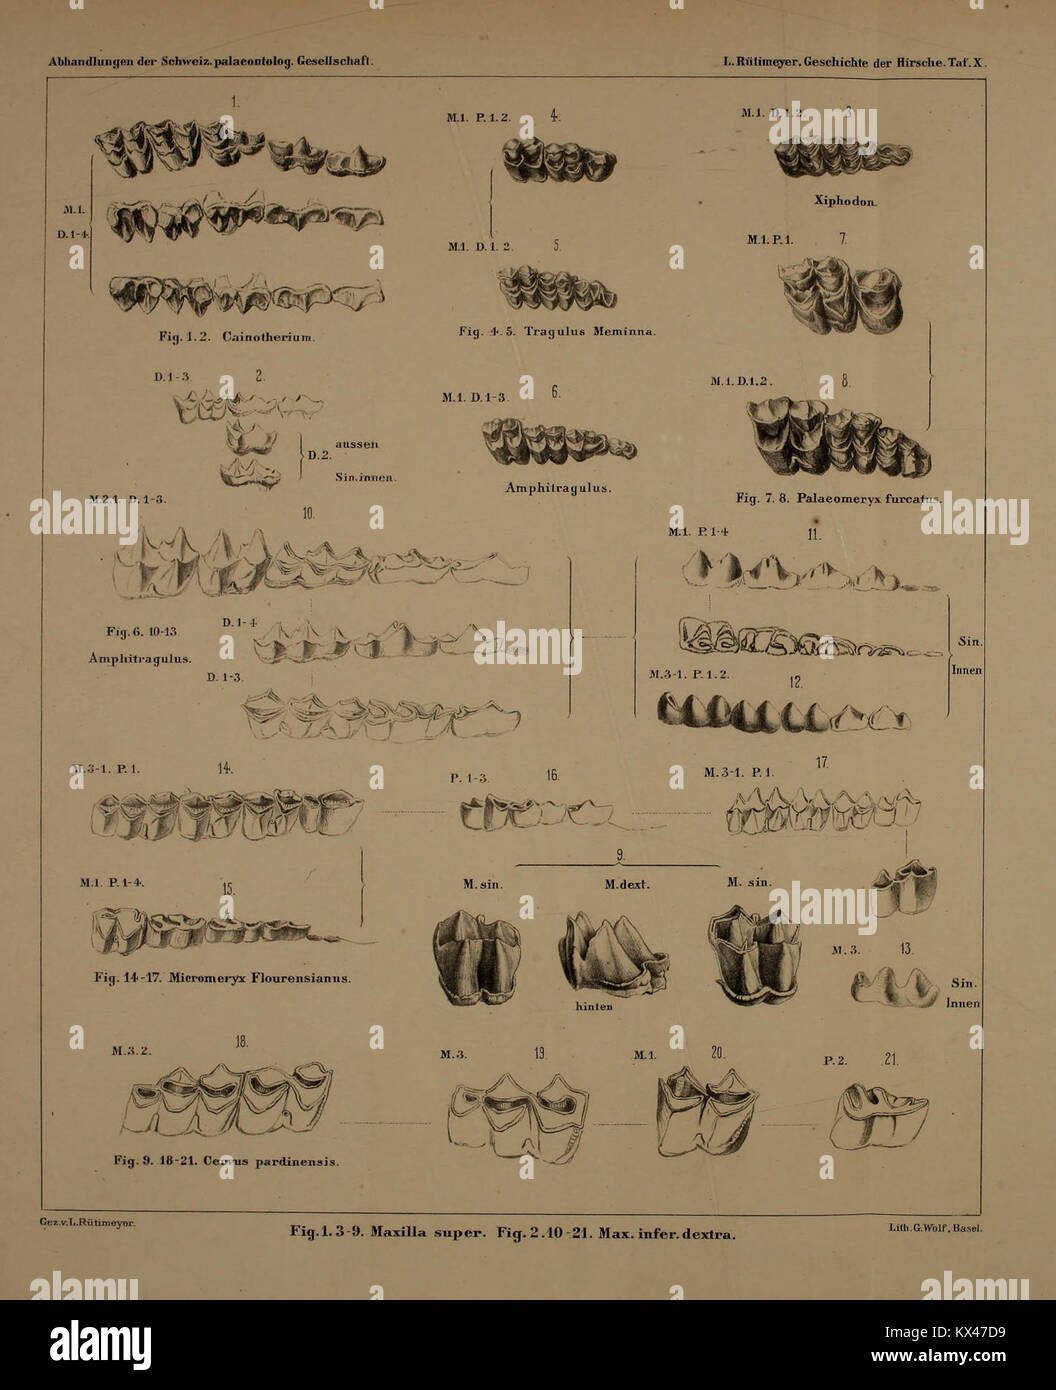 Abhandlungen der Schweiz. palaeontolog. Gesellschaft.
L. Rütimeyer. Geschichte der Hirsche. Taf. X.
1.
M.1.
D.1-4.
Fig. 1. 2. Cainotherium.
M.1. P.1.2. 4.
M.1. D.1.2. 3.
Xiphodon.
M.1. D.1.2. 5.
Fig. 4. 5. Tragulus Meminna.
M.1. P.1. 7.
D.1-3. 2.
D.2.
aussen
Sin. innen.
M.1. D.1-3. 6.
Amphitragulus.
M.1. D.1.2. 8.
Fig. 7. 8. Palaeomeryx furcatus.
M.2.1. D.1-3.
10.
Fig. 6. 10-13.
Amphitragulus.
D.1-4
D.1-3.
M.1. P.1-4 11.
Sin.
Innen
M.3-1. P.1.2. 12.
M.3-1. P.1. 14.
P. 1-3. 16.
M.3-1. P.1. 17.
M.1. P.1-4. 15.
Fig. 14-17. Micromeryx Flourensianus.
9.
M. sin. M. dext. M. sin.
hinten
M.3. 13.
Sin.
Innen
M.3.2. 18.
M.3. 19.
M.1. 20.
P.2. 21.
Fig. 9. 18-21. Cervus pardinensis.
Gez. v. L. Rütimeyer.
Fig. 1. 3-9. Maxilla super. Fig. 2. 10-21. Max. infer. dextra.
Lith. G. Wolf, Basel.
alamy stock photo
KX47D9
www.alamy.com